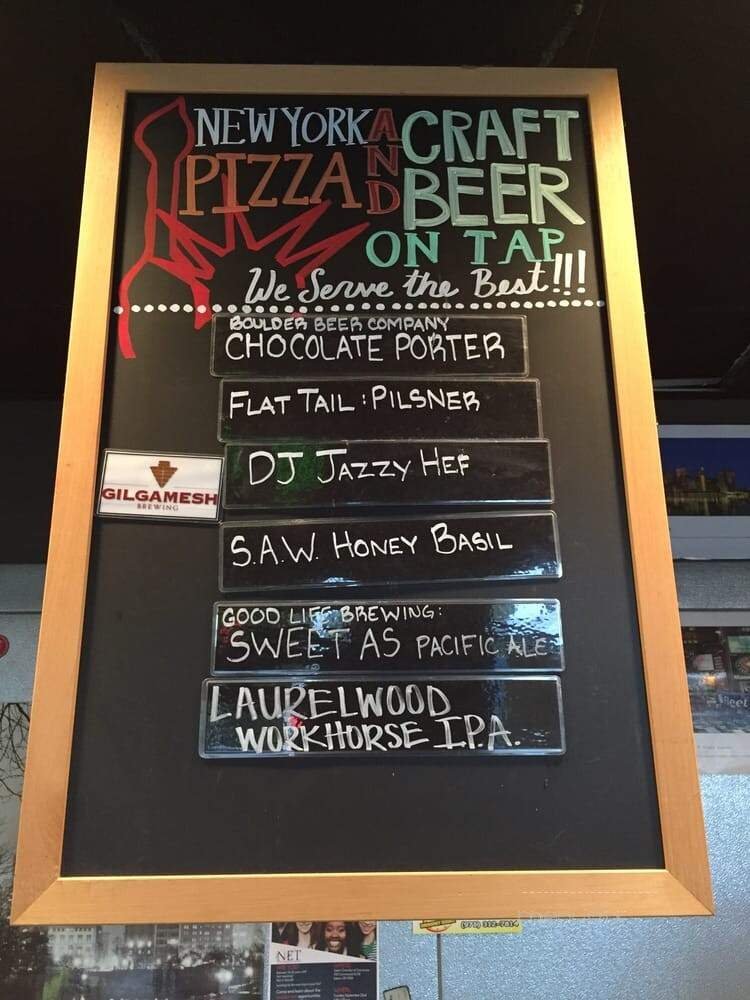 NEW YORK AND CRAFT
PIZZA BEER
ON TAP
We Serve the Best!!!
BOULDER BEER COMPANY
CHOCOLATE PORTER
FLAT TAIL : PILSNER
DJ JAZZY HEF
GILGAMESH
BREWING
S.A.W. HONEY BASIL
GOOD LIFE BREWING:
SWEET AS PACIFIC ALE
LAURELWOOD
WORKHORSE I.P.A.
(971) 312-7814
NET